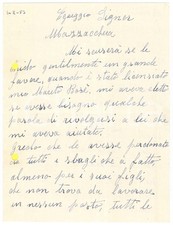 Egreggio Signor
Mazzacchua
Mi scuserà se le
chido gentilmenti un grande
favore, quando è stato licensiato
mio Marito Borsé, mi aveva detto
se avesse bisogno qualche
parola di revolgersi a lei che
mi aveva aiutato,
credo che le avesse perdonato
tutti i sbagli che à fatto
almeno per i suoi figli
che non trova da lavorare
in nessun posto, tutti le